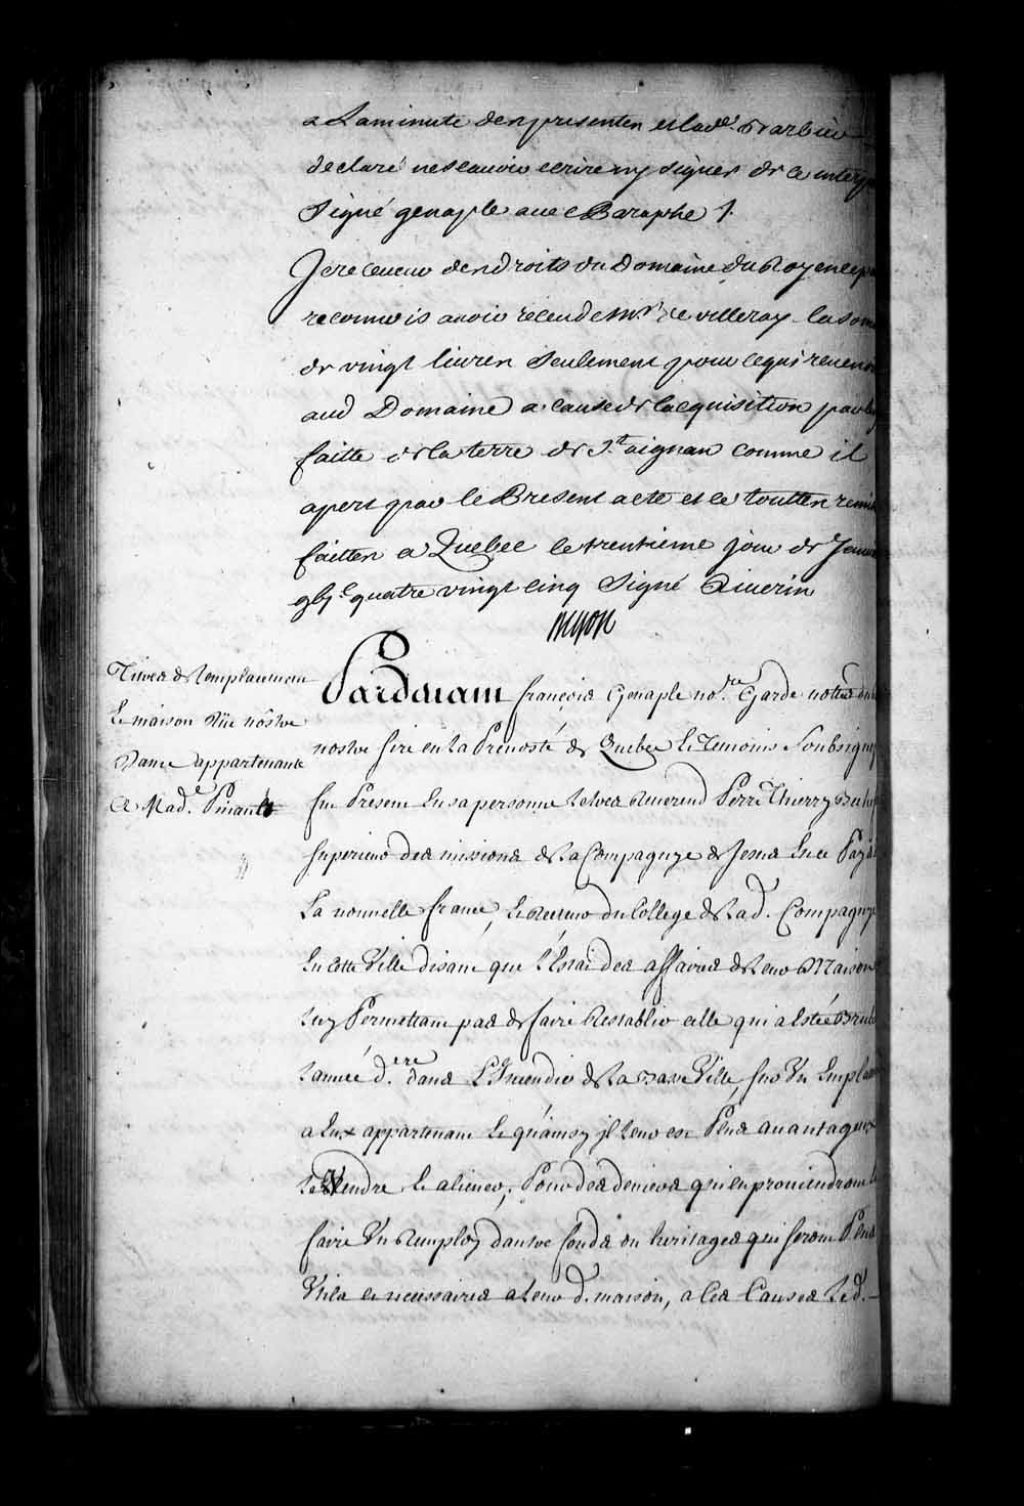 a Laminute des presentes et lad.e Barbier
declaré ne scauoir ecrire ny signer de ce
Signé genaple auec Paraphe /.
Je receueur des droits du Domaine du Roy en ce
reconnois auoir receu de Mr. de villeray la
de vingt liures seulement pour ce qui
aud Domaine a cause de lacquisition par
faitte de la terre de St. aignan comme il
apert par le Present acte et les
faittes a Quebec le trentieme jour de
gbj.c quatre vingt cinq Signé Riuerin
Pardeuant françois Genaple no.re Garde nottes du
Titres de lemplacement
& maison Rüe nostre
Dame appartenante
A Mad.e Pinault
nostre sire en la Preuosté de Quebec & Temoins Soubsignez
fut Present En sa personne le tres Reuerend Perre Thierry
superieur des missions de La Compagnye de Jesus En ce
La nouuelle france, & Recteur du College de Lad. Compagnye
En cette Ville disant que L'Estat des affaires de leur Maison
Luy Permettant pas de faire Restablir celle qui a Esté
Lannée d.ere dans L'Incendie de La basse Ville, sur Un
a Eux appartenant & qu'ainsy jl leur est Plus auantageux
le Vendre & aliener, Pour des deniers qui en prouiendront
faire Un Remploy dautre fonds ou heritages qui seront Plus
Utils et necessaires a leur d. maison, a Ces Causes Led.